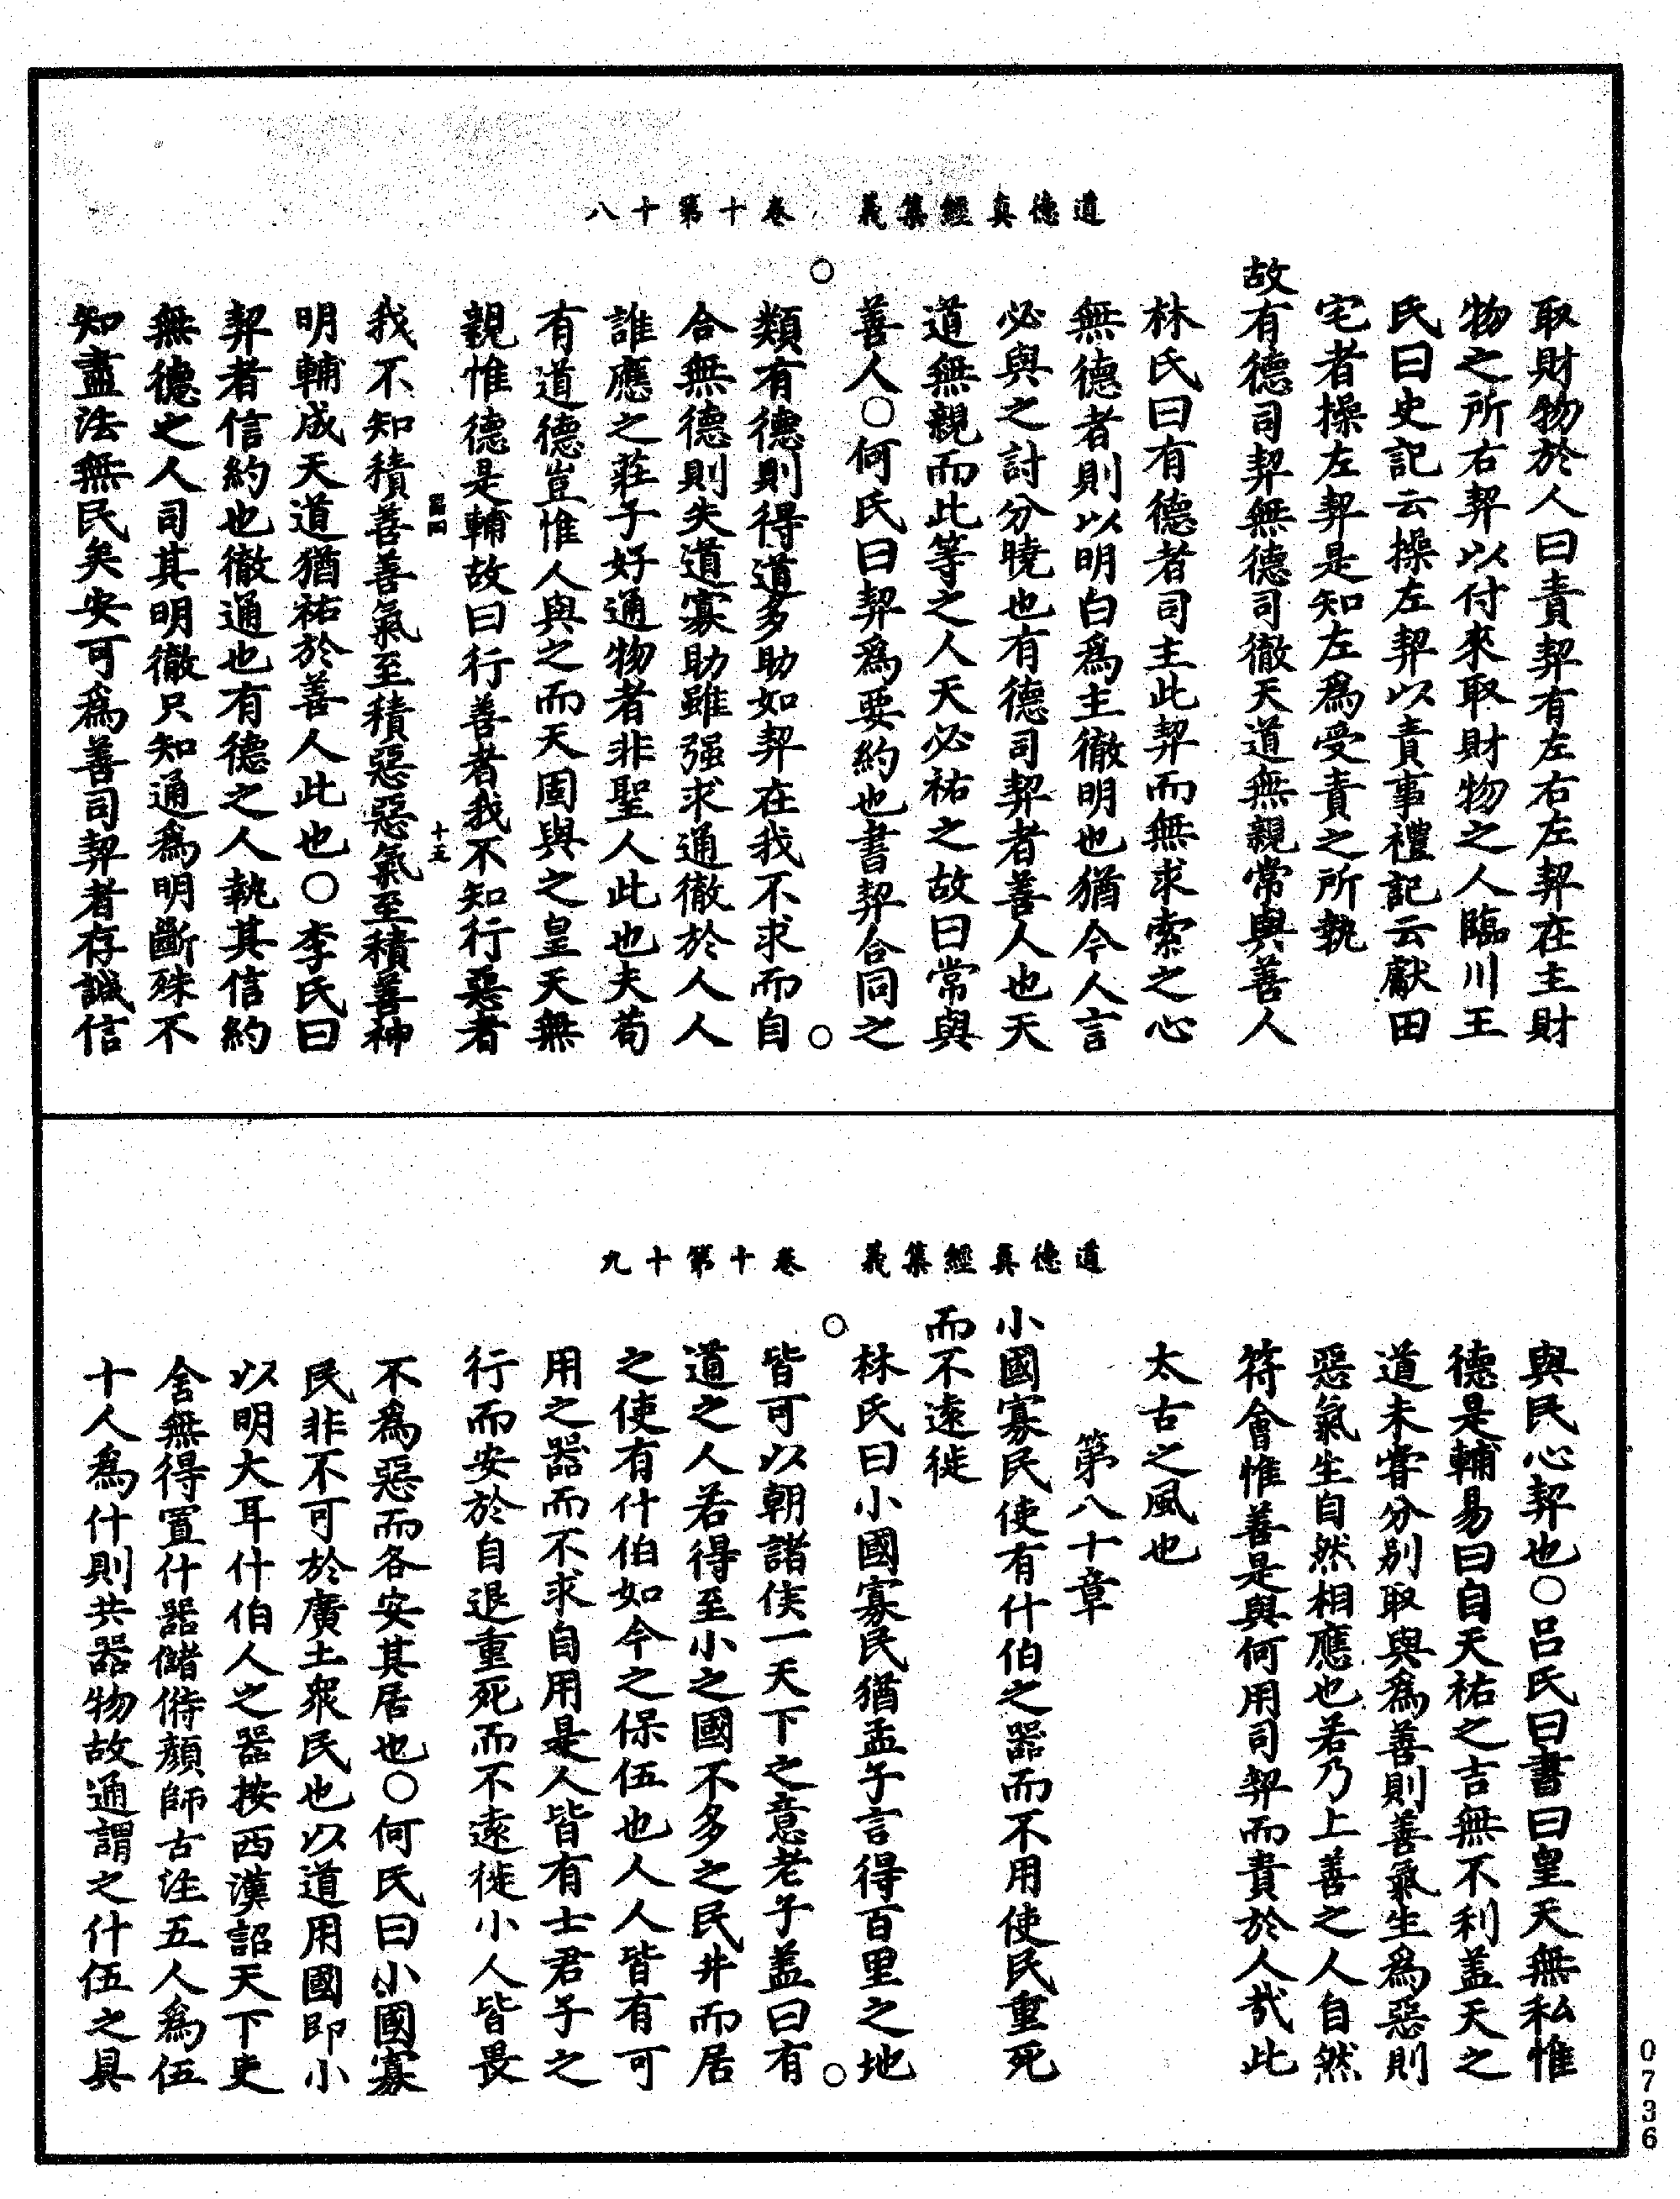 道德真經集義　卷十第十八
取財物於人曰責契有左右左契在主財
物之所右契以付來取財物之人臨川王
氏曰史記云操左契以責事禮記云獻田
宅者操左契是知左爲受責之所執
故有德司契無德司徹天道無親常與善人
林氏曰有德者司主此契而無求索之心
無德者則以明白爲主徹明也猶今人言
必與之討分曉也有德司契者善人也天
道無親而此等之人天必祐之故曰常與
善人○何氏曰契爲要約也書契合同之
○　○
類有德則得道多助如契在我不求而自
合無德則失道寡助雖强求通徹於人人
誰應之莊子好通物者非聖人此也夫苟
有道德豈惟人與之而天固與之皇天無
親惟德是輔故曰行善者我不知行惡者
十五
我不知積善善氣至積惡惡氣至積善神
明輔成天道猶祐於善人此也○李氏曰
契者信約也徹通也有德之人執其信約
無德之人司其明徹只知通爲明斷殊不
知盡法無民矣安可爲善司契者存誠信
道德真經集義　卷十第十九
與民心契也○呂氏曰書曰皇天無私惟
德是輔易曰自天祐之吉無不利盖天之
道未甞分别取與爲善則善氣生爲惡則
惡氣生自然相應也若乃上善之人自然
符會惟善是與何用司契而責於人哉此
太古之風也
第八十章
小國寡民使有什伯之器而不用使民重死
而不遠徙
林氏曰小國寡民猶孟子言得百里之地
○　○
皆可以朝諸侯一天下之意老子盖曰有
道之人若得至小之國不多之民井而居
之使有什伯如今之保伍也人人皆有可
用之器而不求自用是人皆有士君子之
行而安於自退重死而不遠徙小人皆畏
不爲惡而各安其居也○何氏曰小國寡
民非不可於廣土衆民也以道用國即小
以明大耳什伯人之器按西漢詔天下吏
舍無得置什器儲偫顏師古注五人爲伍
十人爲什則共器物故通謂之什伍之具
0736